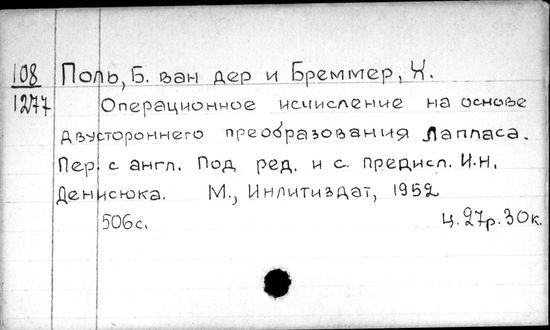 108 Поль, Б. ван дер и Бреммер, Х.
1277 Операционное исчисление на основе
двустороннего преобразования Лапласа.
Пер. с англ. Под ред. и с предисл. И.Н.
Денисюка. М., Инлитиздат, 1952
506с. Ц. 27р. 30к.